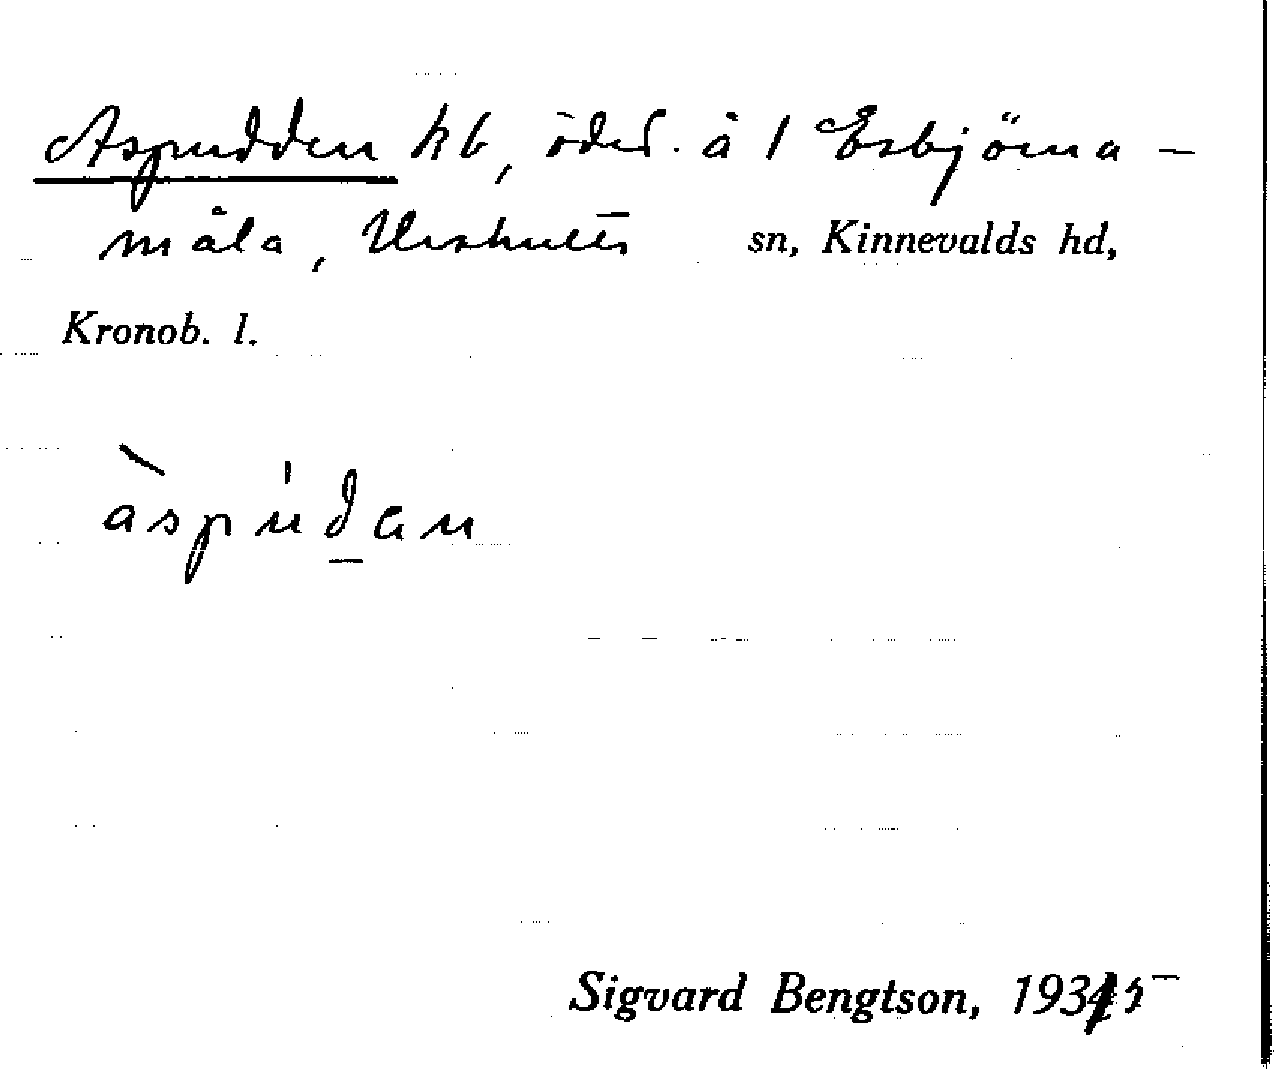 Aspudden kb, öder. å 1 Esbjörna-
måla, Urshults sn, Kinnevalds hd,
Kronob. l.
àspúdan
Sigvard Bengtson, 1935